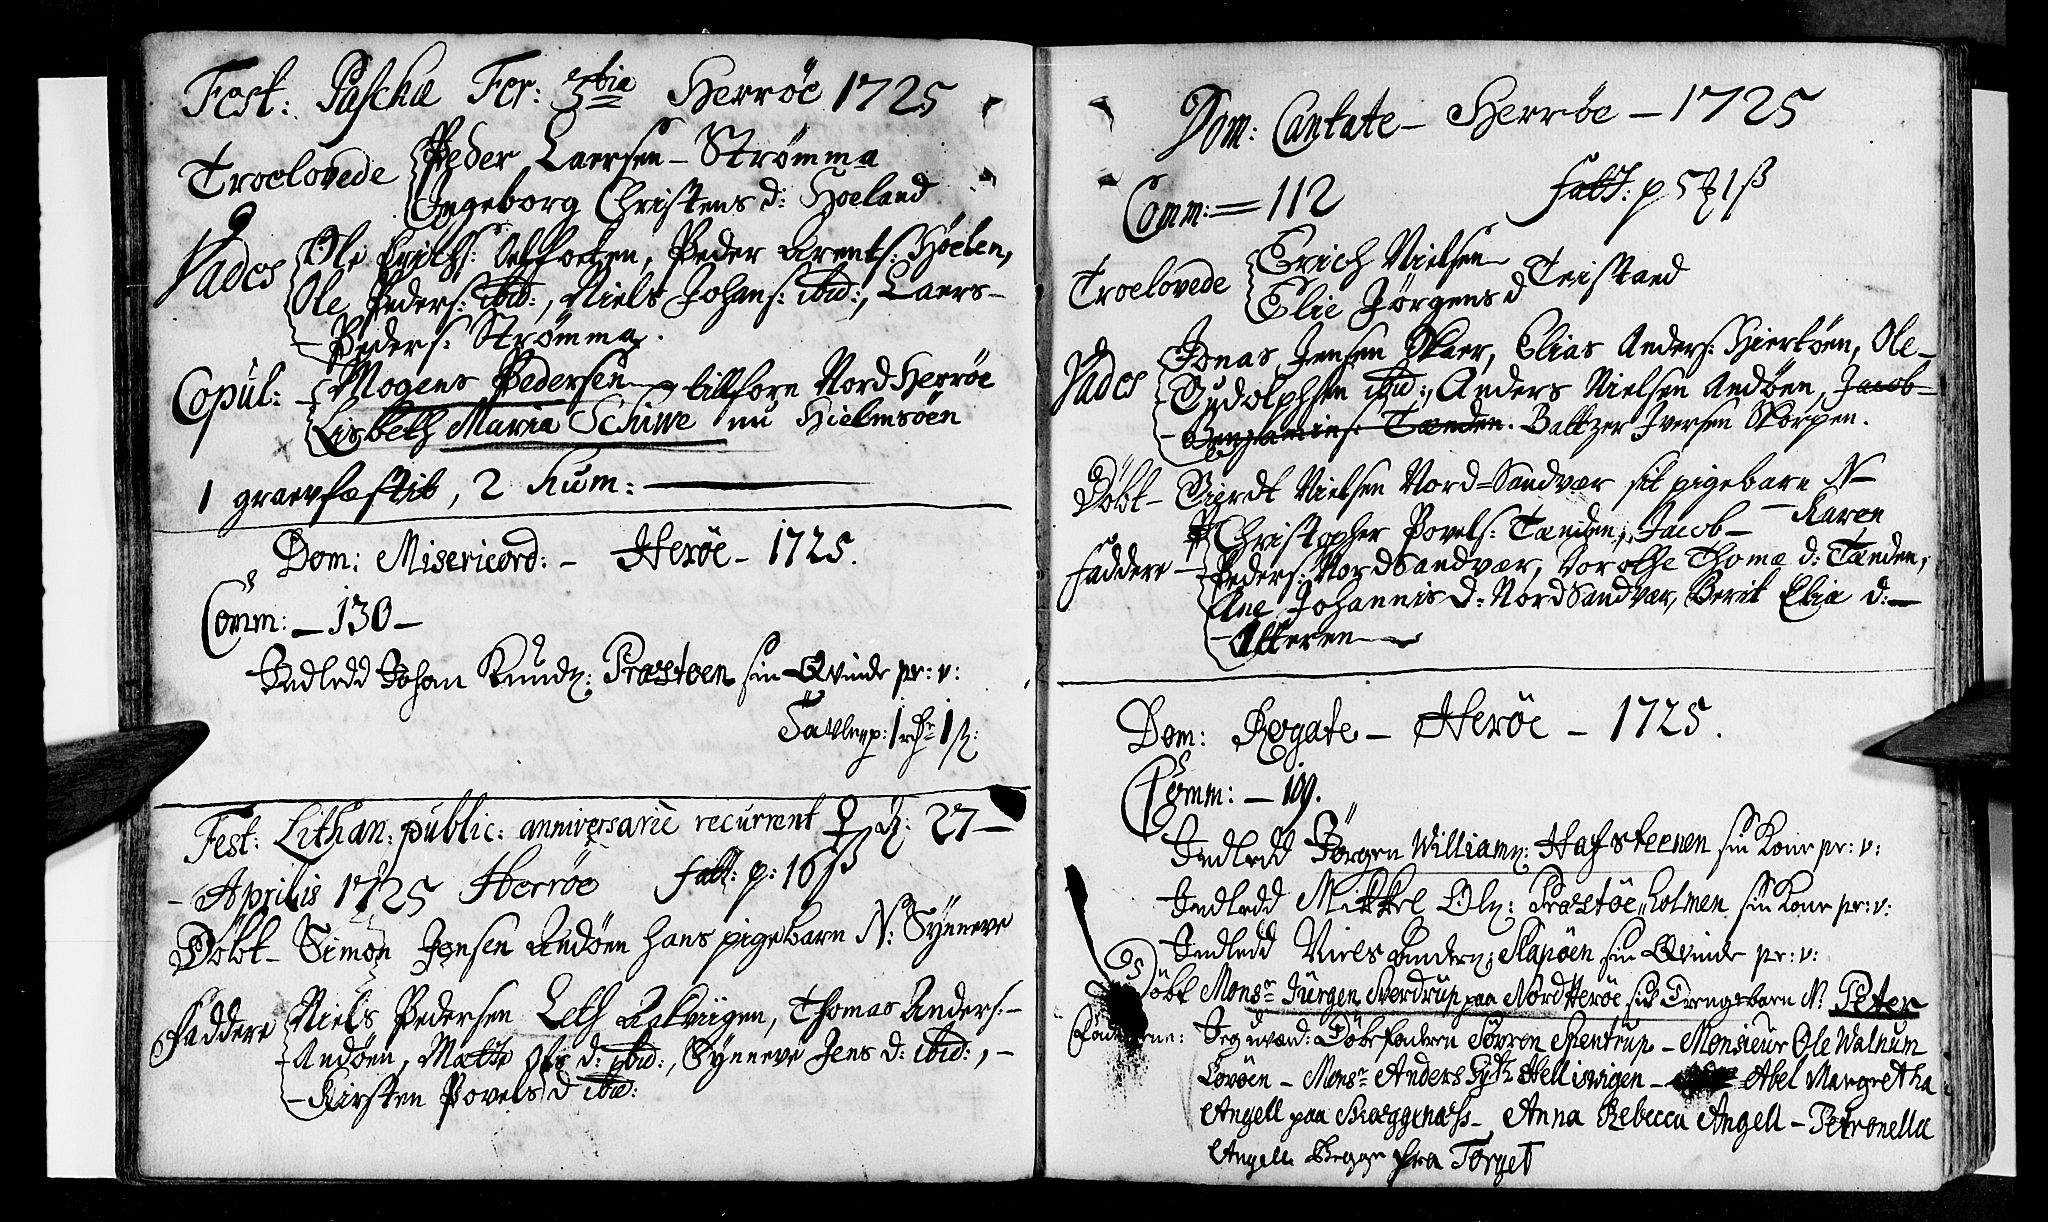 Fest: Paschæ Fer: 3tia Herrøe 1725
Troelovede Peder Laersen - Strømma
Ingeborg Christens d: Hoeland
Vades Ole Erichs: Peder Arents: Høelen,
Ole Peders: ibid:, Niels Johans: ibid:, Laers-
Peders: Strømma.
Copul: Mogens Pedersen tillforn Nord Herrøe
Lisbeth Maria Schiwe nu Hielmsøen
1 graevfæstit, 2 hum:
Dom: Misericord: - Herøe - 1725.
Comm: - 130 -
Indledd Johan Knudz: Præstøen sin Qvinde pr: v:
Tavlep: 1 ort 1 ß:
Fest: Lithan: public: anniversarie recurrent ♀ d: 27 -
- Aprilis 1725 Herrøe fatt: p: 16 ß
Döbt - Simon Jensen Andøen hans pigebarn N: Synneve
Faddere Niels Pedersen Leth Askviigen, Thomas Anders: -
Andøen, Mætte Ols d: ibid:, Synneve Jens d: ibid:, -
- Kirsten Povels d ibid:
Dom: Cantate - Herrøe - 1725
Comm: = 112 fatt: p 5 ℥ 1 ß
Troelovede Erich Nielsen
Elie Jørgens d Teistaed
Vades Jonas Jensen Skaer, Elias Anders: Hiertøen, Ole -
Tudolphsen ibid:, Anders Nielsen Andøen, Jacob -
- Benjamins: Tænden. Baltzer Iversen Skorpen.
Döbt - Siørdt Nielsen Nord-Sandvær sit pigebarn N -
- Karen
Faddere - Christopher Povels: Tænden, Jacob -
Peders: Nord Sandvær, Dorothe Thomæ d: Tænden,
Ane Johannis d: Nord Sandvær, Berit Eliæ d: -
- Alteren
Dom: Rogate - Herøe - 1725.
Comm: - 109.
Indledd Jörgen Williamz: Hafsteenen sin Kone pr: v:
Indledd Mikkel Olz: Præstøe holmen sin Kone pr: v:
Indledd Niels Anderz: Slapøen sin Qvinde pr: v:
Döbt Monsr Jürgen Sverdrup paa Nord Herøe sit Drengebarn N: Peter
Fadderne: Jeg war: Döbefaderen Sörren Stentrup - Monsieur Ole Walnum
Lovöen - Monsr Anders Hellisvigen - Abel Margretha
Angell paa Skieggenæss - Anna Rebecca Angell - Petronella
Angell Begge fra Torget